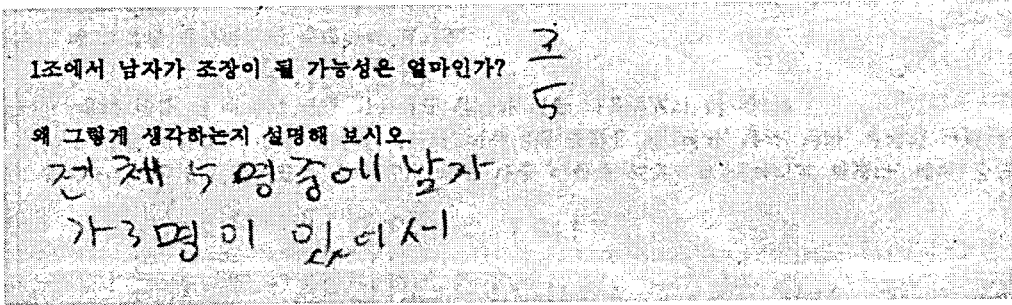 1조에서 남자가 조장이 될 가능성은 얼마인가? 3/5
왜 그렇게 생각하는지 설명해 보시오
전체 5명중에 남자
가 3명이 있어서